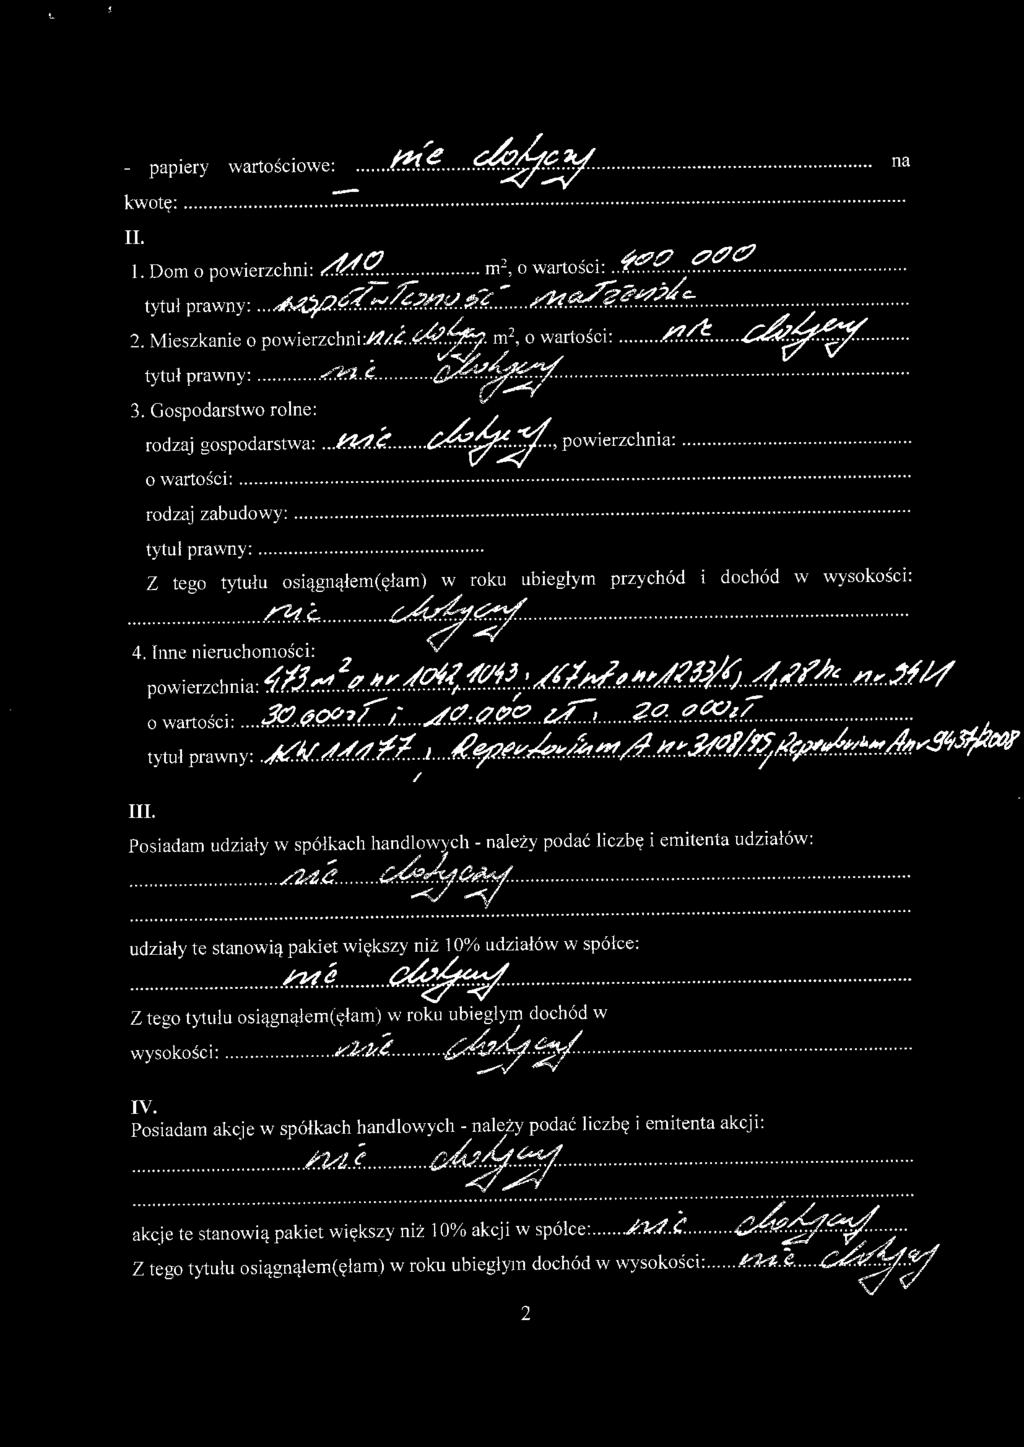 - papiery wartościowe: .....nie dotyczy..... na
kwotę: .....—.....
II.
1. Dom o powierzchni: 110..... m², o wartości: ..400 000.....
tytuł prawny: ...współwłasność małżeńska.....
2. Mieszkanie o powierzchni: nie dotyczy m², o wartości: ......nie dotyczy.....
tytuł prawny: .....nie dotyczy.....
3. Gospodarstwo rolne:
rodzaj gospodarstwa: ...nie dotyczy..., powierzchnia: .....
o wartości: .....
rodzaj zabudowy: .....
tytuł prawny: .....
Z tego tytułu osiągnąłem(ęłam) w roku ubiegłym przychód i dochód w wysokości:
.....nie dotyczy.....
4. Inne nieruchomości:
powierzchnia: 473 m² o nr 1042, 1043; 167 m² o nr 1233/6; 1,28 ha nr 941/1
o wartości: ....30.600 zł; 10.000 zł; 20.000 zł.....
tytuł prawny: .KW 11177; Repertorium A nr 3108/95, Repertorium A nr 9437/2008
III.
Posiadam udziały w spółkach handlowych - należy podać liczbę i emitenta udziałów:
.....nie dotyczy.....
.....
udziały te stanowią pakiet większy niż 10% udziałów w spółce:
.....nie dotyczy.....
Z tego tytułu osiągnąłem(ęłam) w roku ubiegłym dochód w
wysokości: .....nie dotyczy.....
IV.
Posiadam akcje w spółkach handlowych - należy podać liczbę i emitenta akcji:
.....nie dotyczy.....
.....
akcje te stanowią pakiet większy niż 10% akcji w spółce:......nie dotyczy.....
Z tego tytułu osiągnąłem(ęłam) w roku ubiegłym dochód w wysokości:......nie dotyczy
2